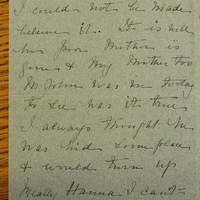 I could not be made
believe it. It is well
his poor Mother is
gone & my Mother too
was in today
to see was it true
I always thought he
was hid some place
& would turn up
Really Hanna I can't